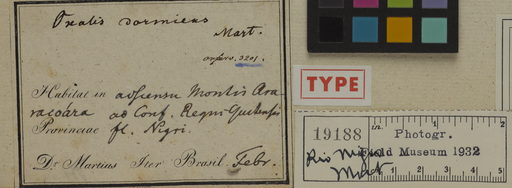 Oxalis dormiens
Mart.
3201.
Habitat in adscensu Montis Ara
racoára ad Conf. Regni Quitensis
Provinciae fl. Nigri.
Dr. Martius Iter Brasil. Febr.
TYPE
19188
in.
1
2
Photogr.
Field Museum 1932
Rio
Mart
1
2
3
4
5